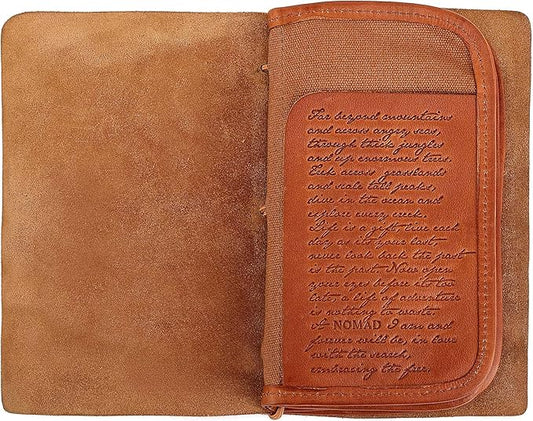 Far beyond mountains
and across angry seas,
through thick jungles
and up enormous trees.
Trek across grasslands
and scale tall peaks,
dive in the ocean and
explore every creek.
Life is a gift live each
day as its your last
never look back the past
is the past. Now open
your eyes before its too
late, a life of adventure
is nothing to waste.
A NOMAD I am and
forever will be, in love
with the search,
embracing the free.